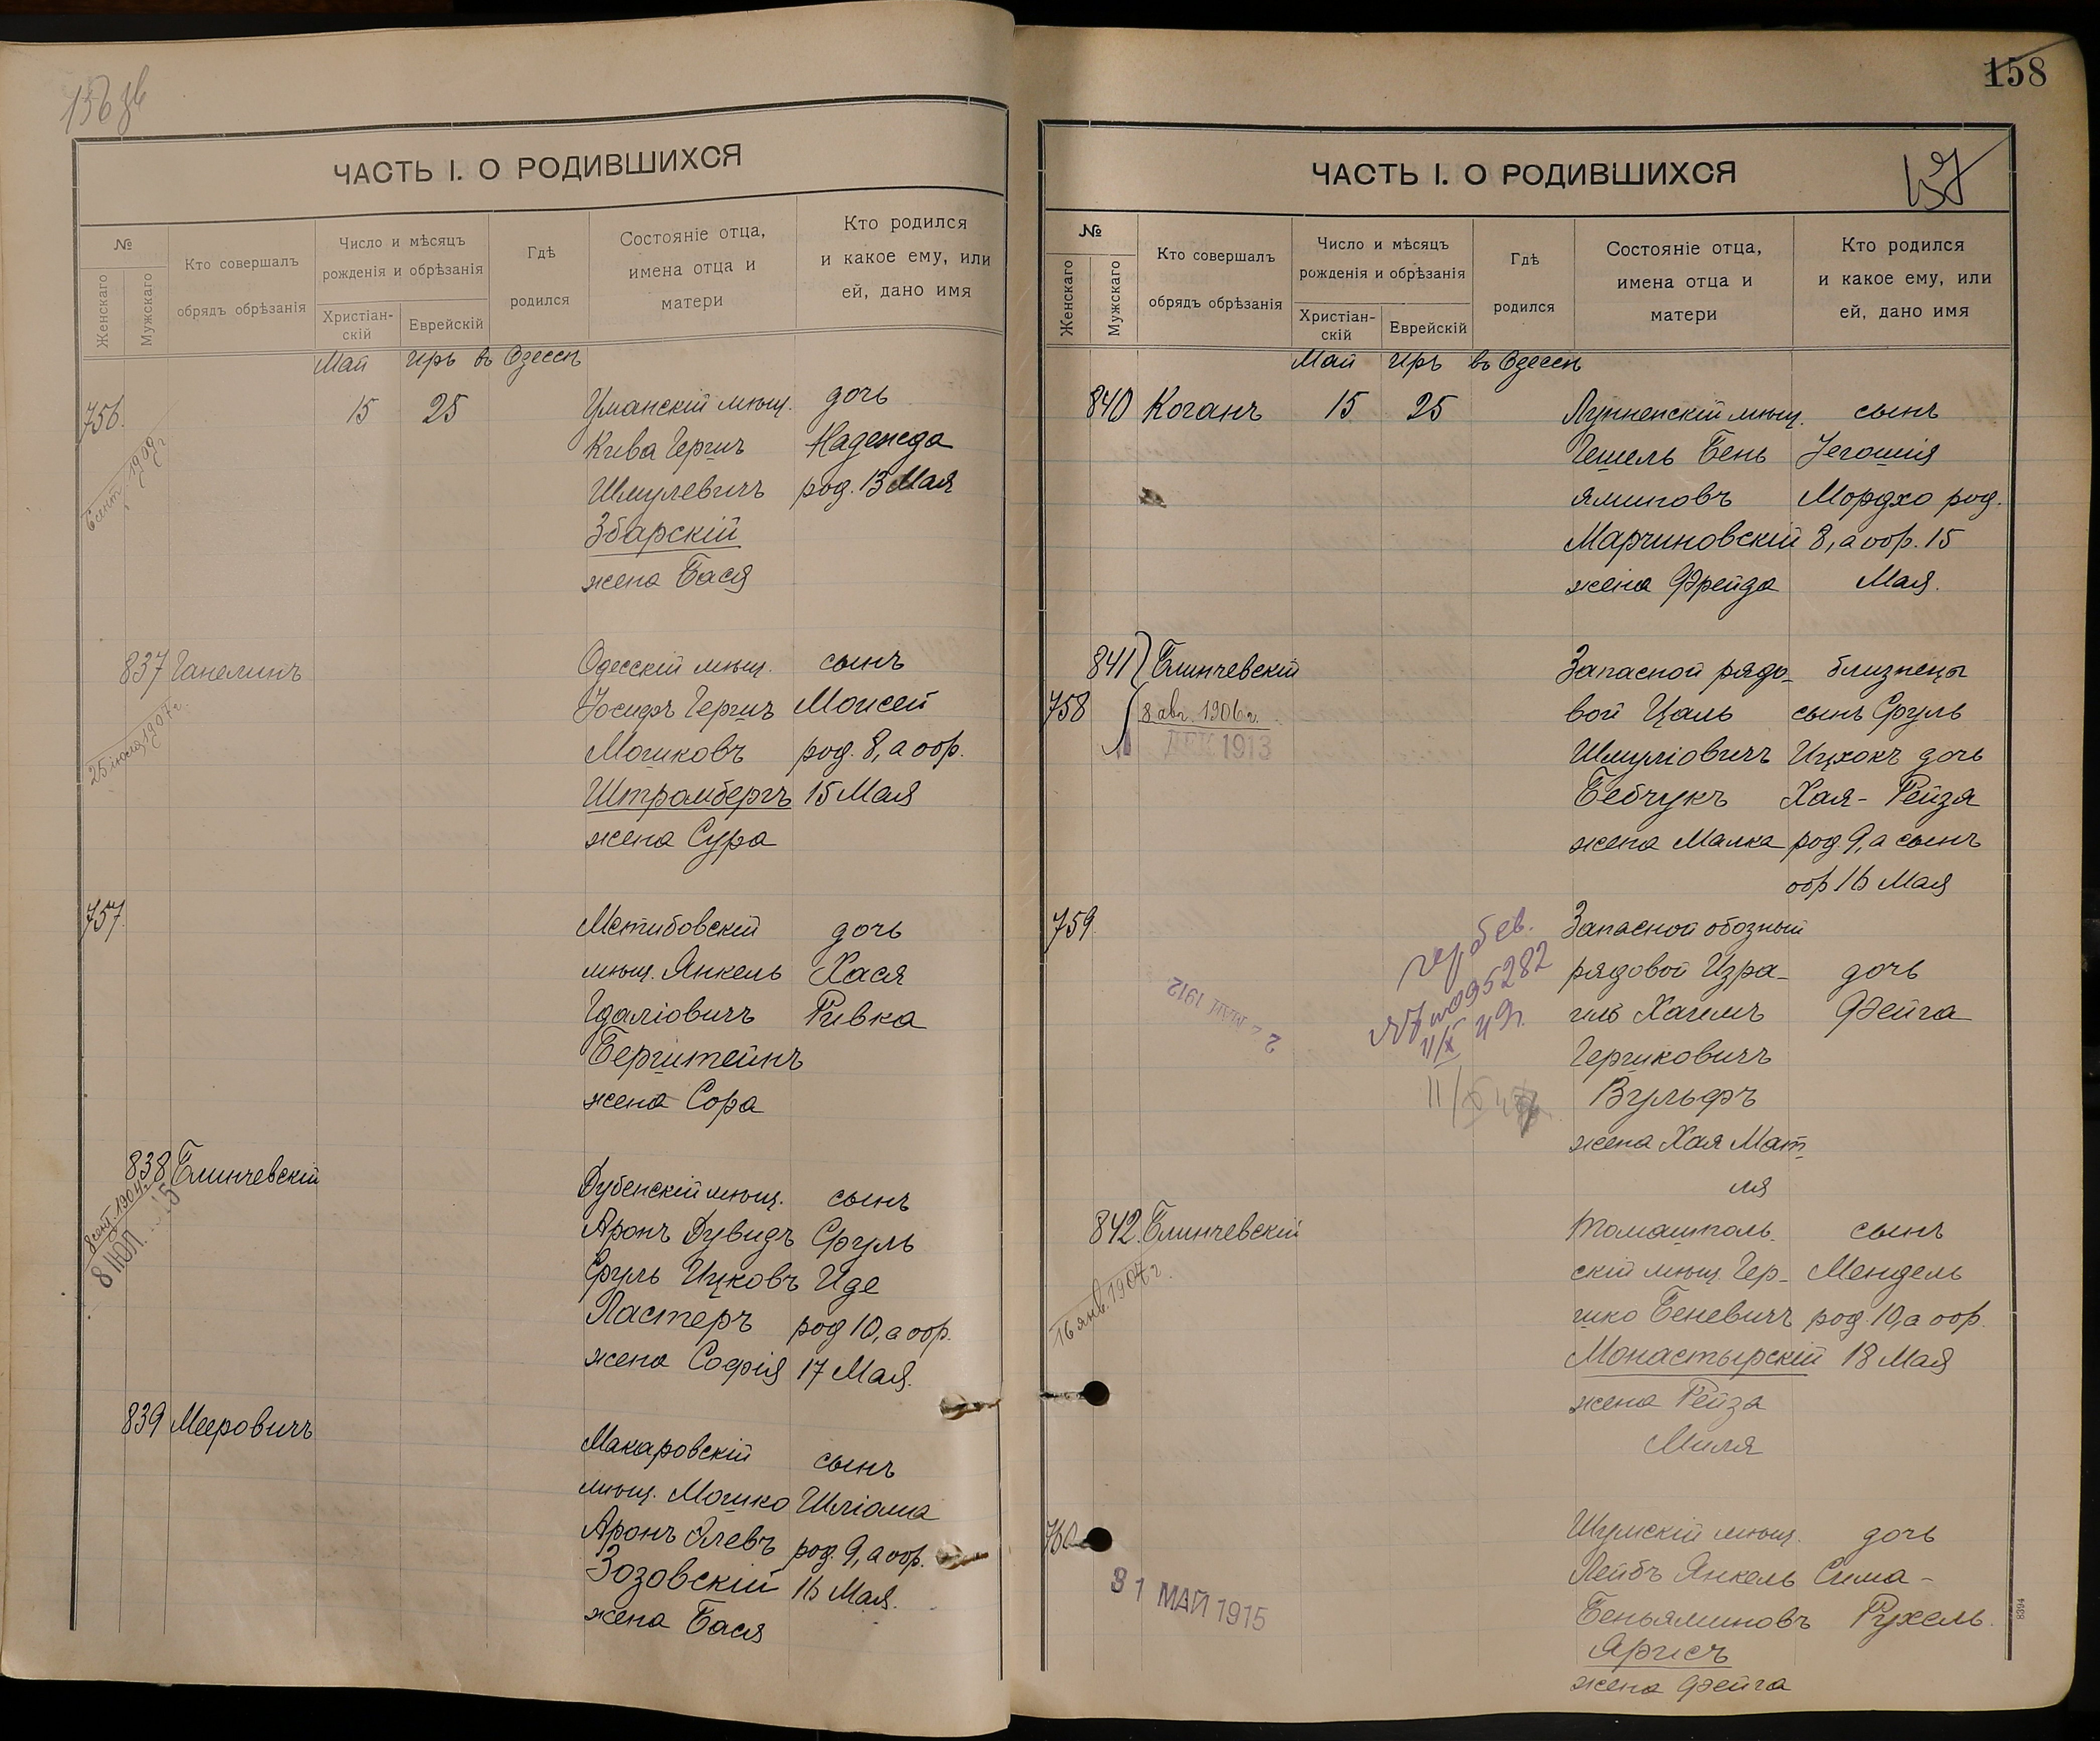 156 зв
ЧАСТЬ I. О РОДИВШИХСЯ
№
Женскаго
Мужскаго
Кто совершалъ
обрядъ обрѣзанія
Число и мѣсяцъ
рожденія и обрѣзанія
Христіан-
скій
Еврейскій
Гдѣ
родился
Состояніе отца,
имена отца и
матери
Кто родился
и какое ему, или
ей, дано имя
Май Иръ въ Одессѣ
756. 15 25 Уманскій мѣщ. дочь
Кива Герш Надежда
Шмулевичъ род. 13 Мая
Збарскій
жена Бася
837 Ганелинъ Одесскій мѣщ. сынъ
Іосифъ Гершъ Моисей
Мошковъ род. 8, а обр.
Штромбергъ 15 Мая
жена Сура
25 1907 г.
757. дочь
мѣщ. Янкель Хася
Гдаліовичъ Ривка
Берштейнъ
жена Сора
838 Блинчевскій Дубенскій мѣщ. сынъ
8 сент. 1904 г.
8 ІЮЛ. 15
Аронъ Дувидъ Сруль
Сруль Ицковъ Иде
Пастеръ род 10, а обр.
жена Софія 17 Мая.
839 Мееровичъ Макаровскій сынъ
мѣщ. Мошко Шліома
Аронъ род. 9, а обр.
Зозовскій 16 Мая.
жена Бася
158
157
ЧАСТЬ I. О РОДИВШИХСЯ
№
Женскаго
Мужскаго
Кто совершалъ
обрядъ обрѣзанія
Число и мѣсяцъ
рожденія и обрѣзанія
Христіан-
скій
Еврейскій
Гдѣ
родился
Состояніе отца,
имена отца и
матери
Кто родился
и какое ему, или
ей, дано имя
Май Иръ въ Одессѣ
840 Коганъ 15 25 мѣщ. сынъ
Гешель Бень Іегошія
яминовъ Мордхо род.
Марчиновскій 8, а обр. 15
жена Фрейда Мая.
841 Блинчевскій Запасной рядо- близнецы
758 8 авг. 1906 г. вой Цаль сынъ Сруль
ДЕК 1913
Шмуліовичъ Ицхокъ дочь
Бебчукъ Хая-Рейзя
жена Малка род 9, а сынъ
обр 16 Мая
759 Запасной обозный
рядовой Изра- дочь
иль Хаимъ Фейга
Гершковичъ
Вульфъ
жена Хая Мат
ля
095282
2 МАЙ 1912
842. Блинчевскій Томашполь. сынъ
16 янв. 1907 г.
скій мѣщ. Гер- Мендель
шко Беневичъ род. 10, а обр.
Монастырскій 18 Мая
жена Рейза
Миля
760 Шумскій мѣщ. дочь
31 МАЙ 1915
Лейбъ Янкель Сима-
Беньяминовъ Рухель.
Яргисъ
жена Фейга
8394